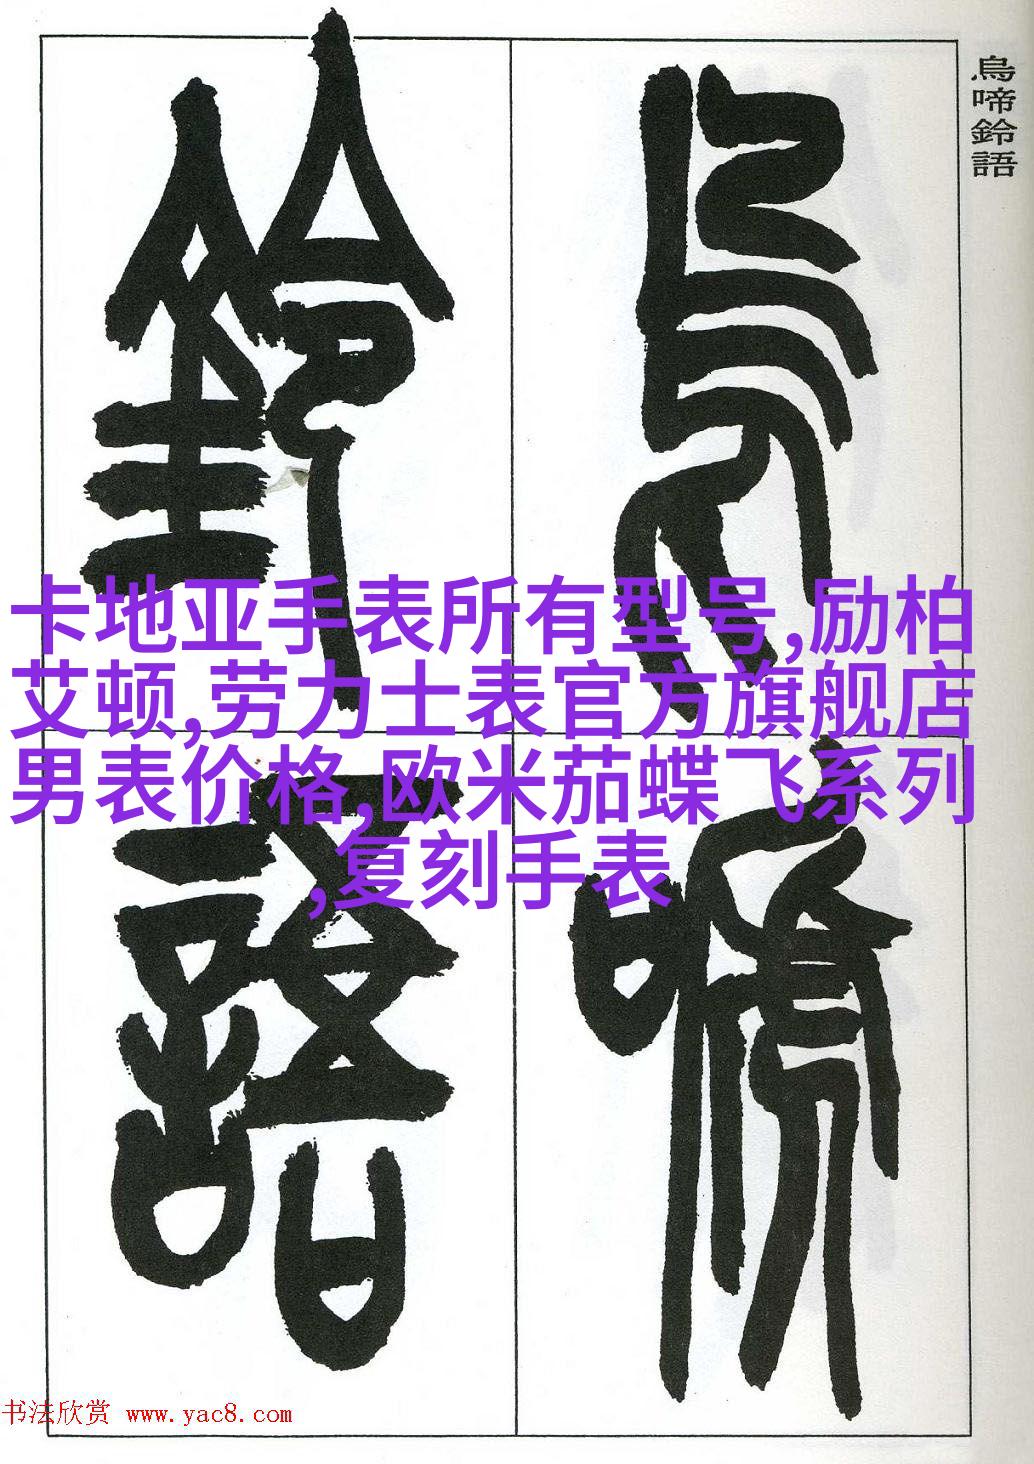 鳥啼鈴語
鳥啼
鈴語
卡地亚手表所有型号,励柏
艾顿,劳力士表官方旗舰店
男表价格,欧米茄蝶飞系列
,复刻手表
书法欣赏 www.yac8.com